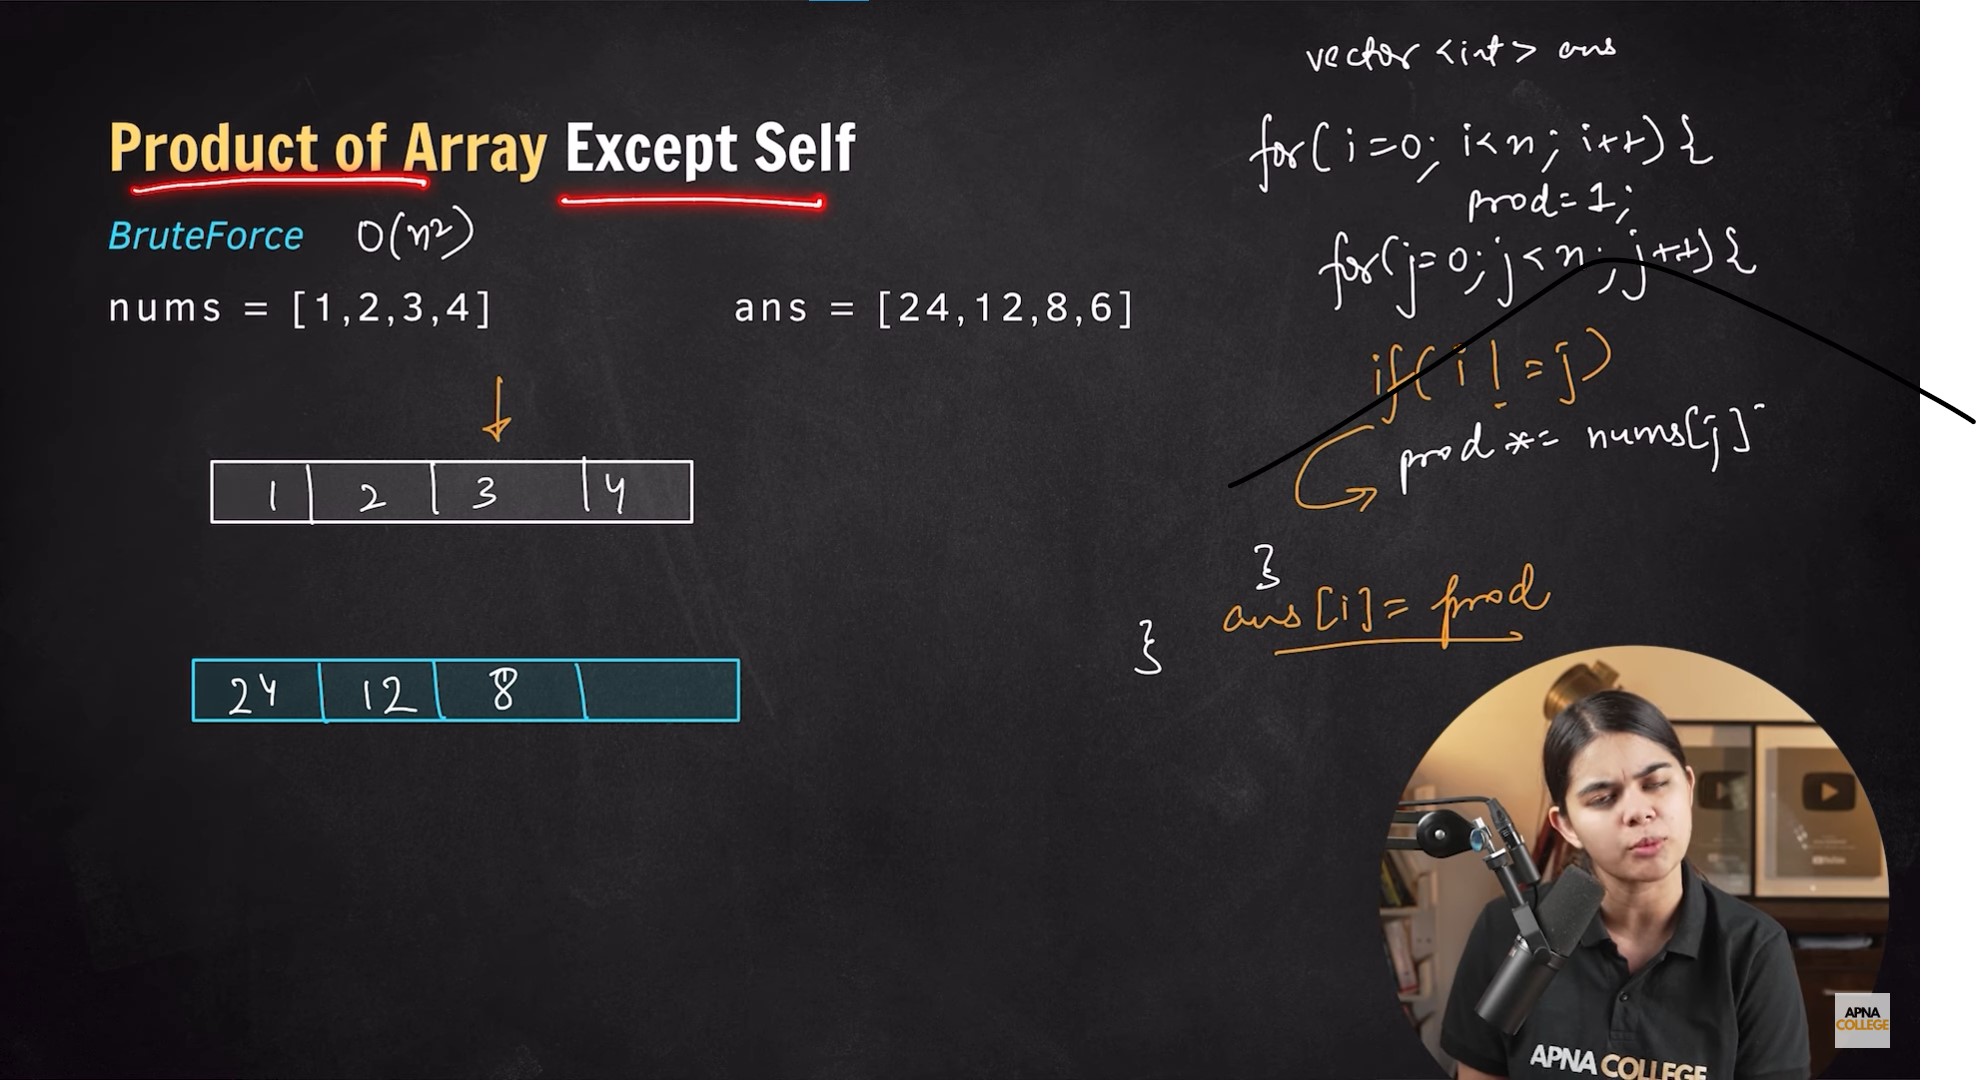 Product of Array Except Self
BruteForce O(n²)
nums = [1,2,3,4]
ans = [24,12,8,6]
1 2 3 4
24 12 8
vector <int> ans
for(i=0; i<n; i++){
prod=1;
for(j=0; j<n; j++){
if(i!=j)
prod *= nums[j]
}
ans[i]= prod
}
APNA COLLEGE
APNA
COLLEGE